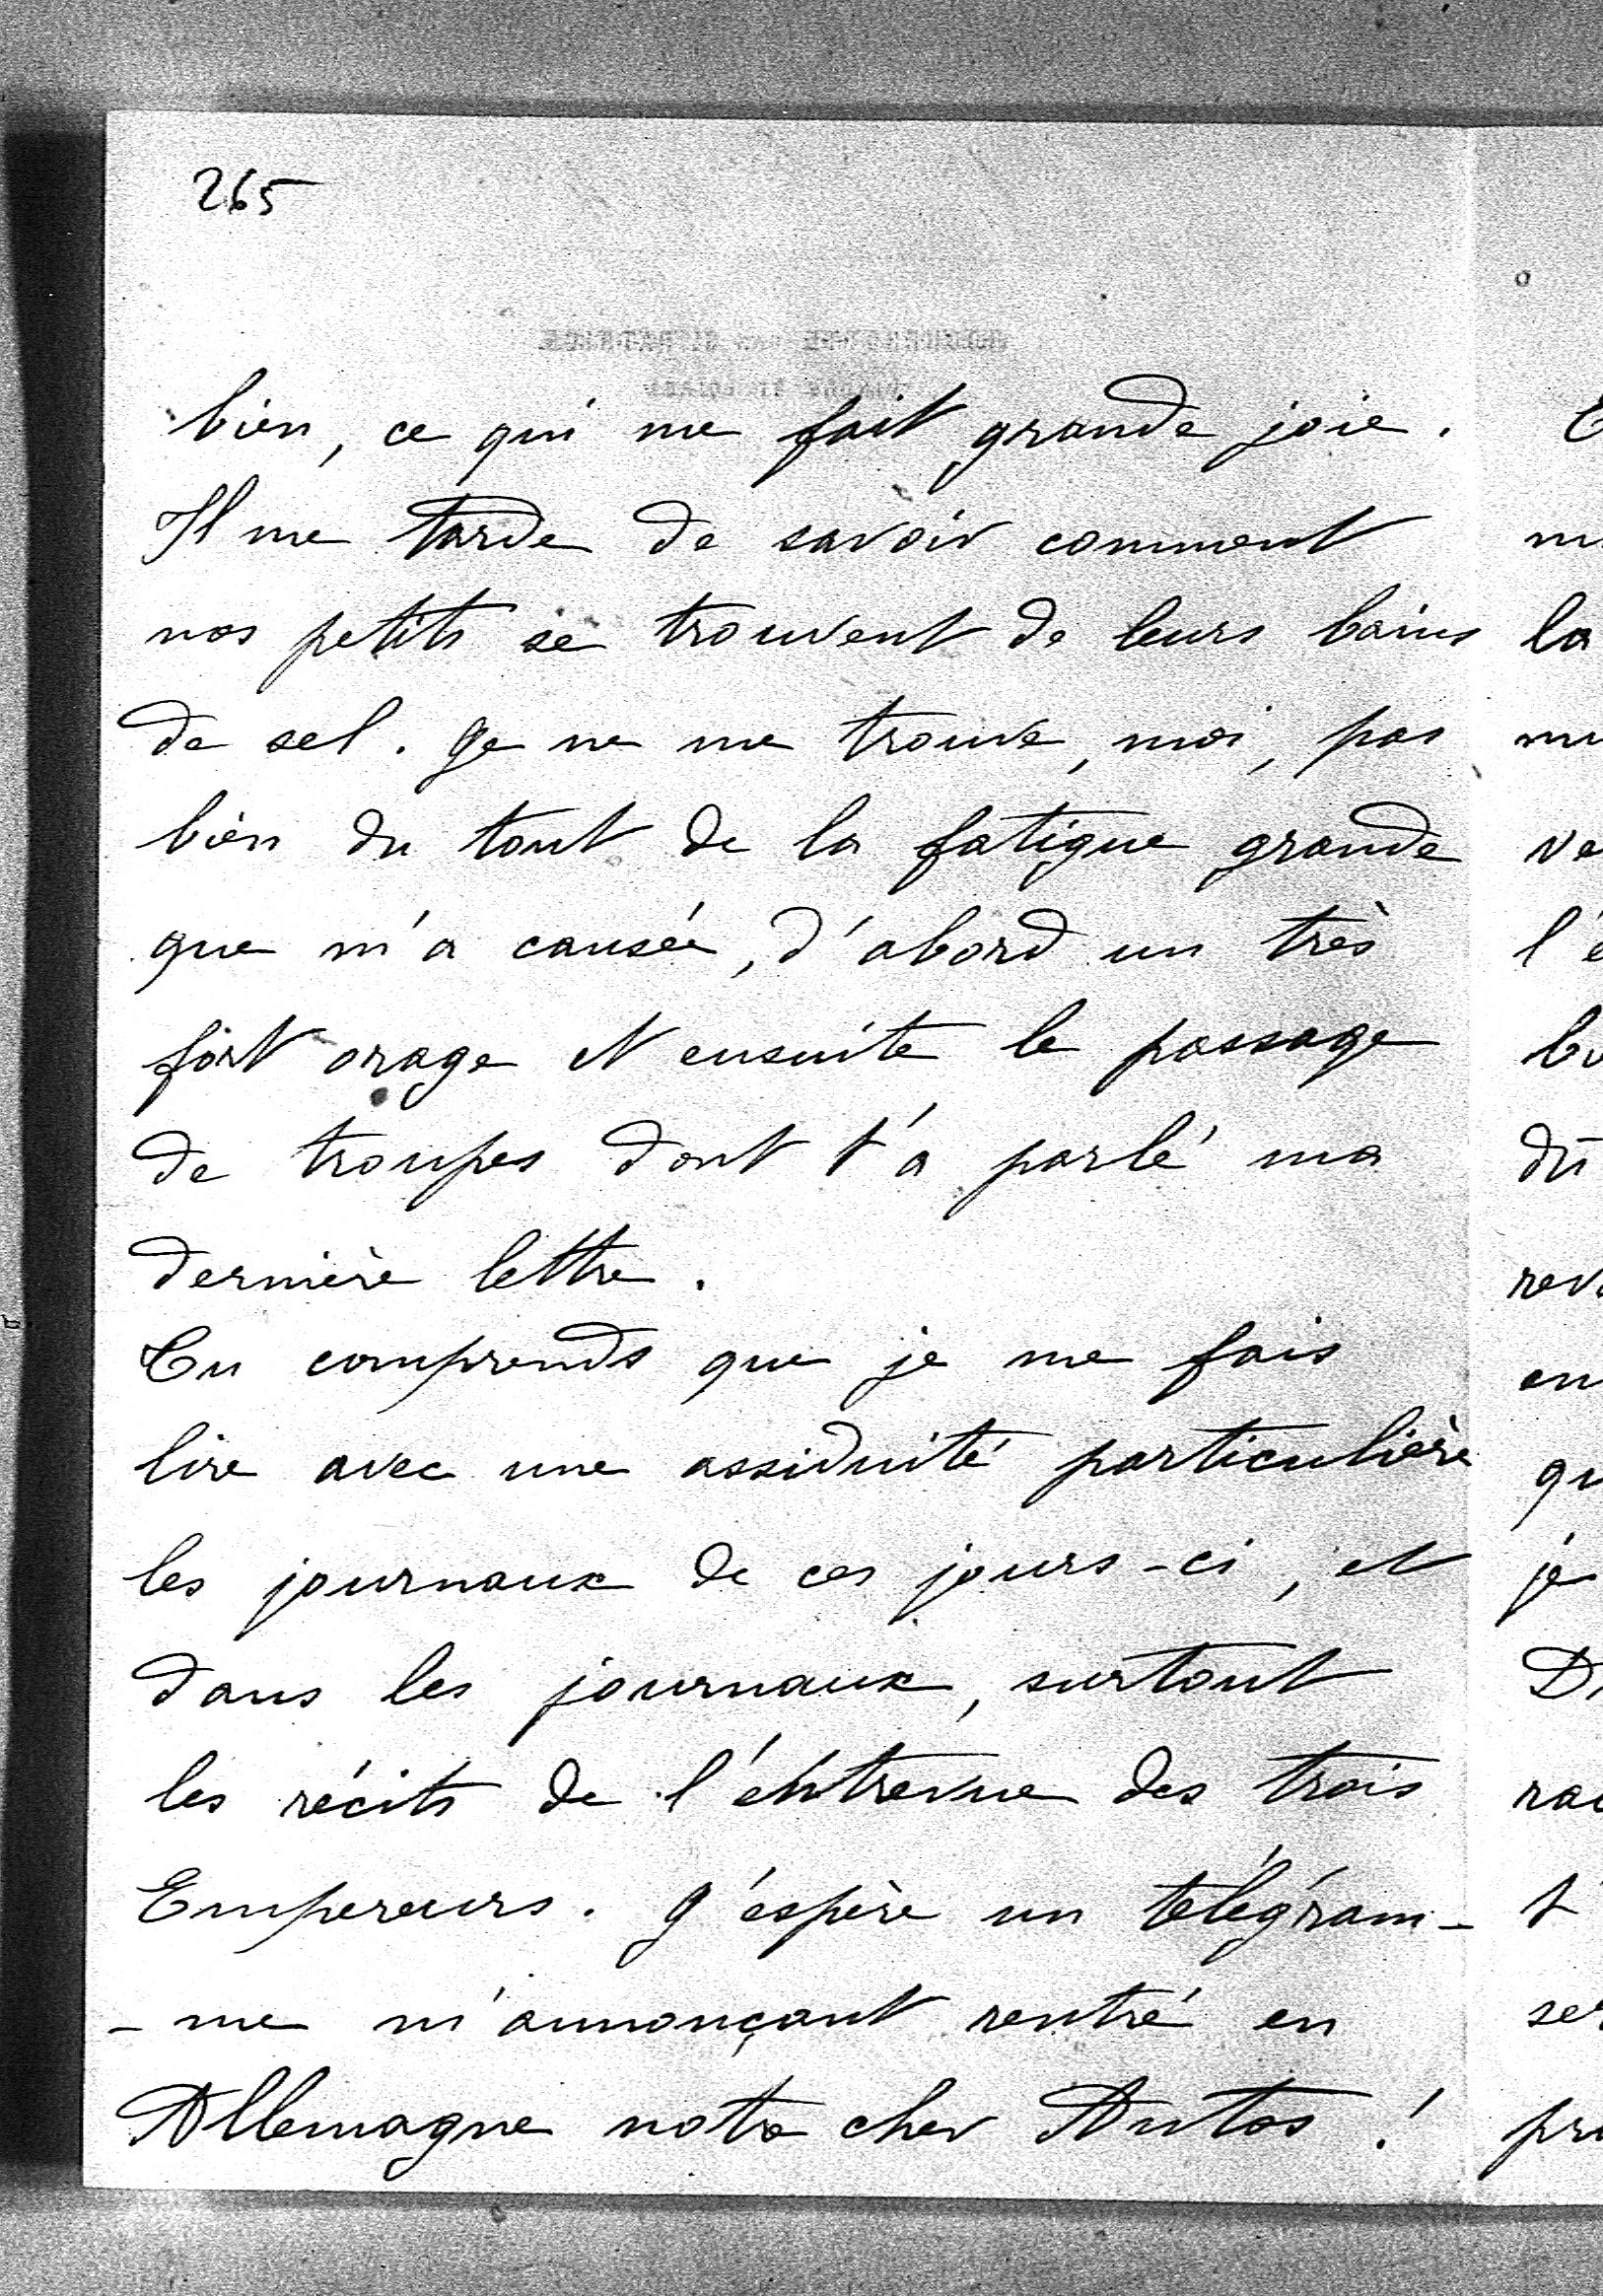 265
bien, ce qui me fait grande joie.
Il me tarde de savoir comment
nos petits se trouvent de leurs bains
de sel. Je ne me trouve, moi, pas
bien du tout de la fatigue grande
que m'a causée, d'abord un très
fort orage et ensuite le passage
de troupes dont t'a parlé ma
dernière lettre.
Tu comprends que je me fais
lire avec une assiduité particulière
les journaux de ces jours-ci, et
dans les journaux, surtout
les récits de l'entrevue des trois
Empereurs. J'espère un télégram-
-me m'annonçant rentré en
Allemagne notre cher Antos!